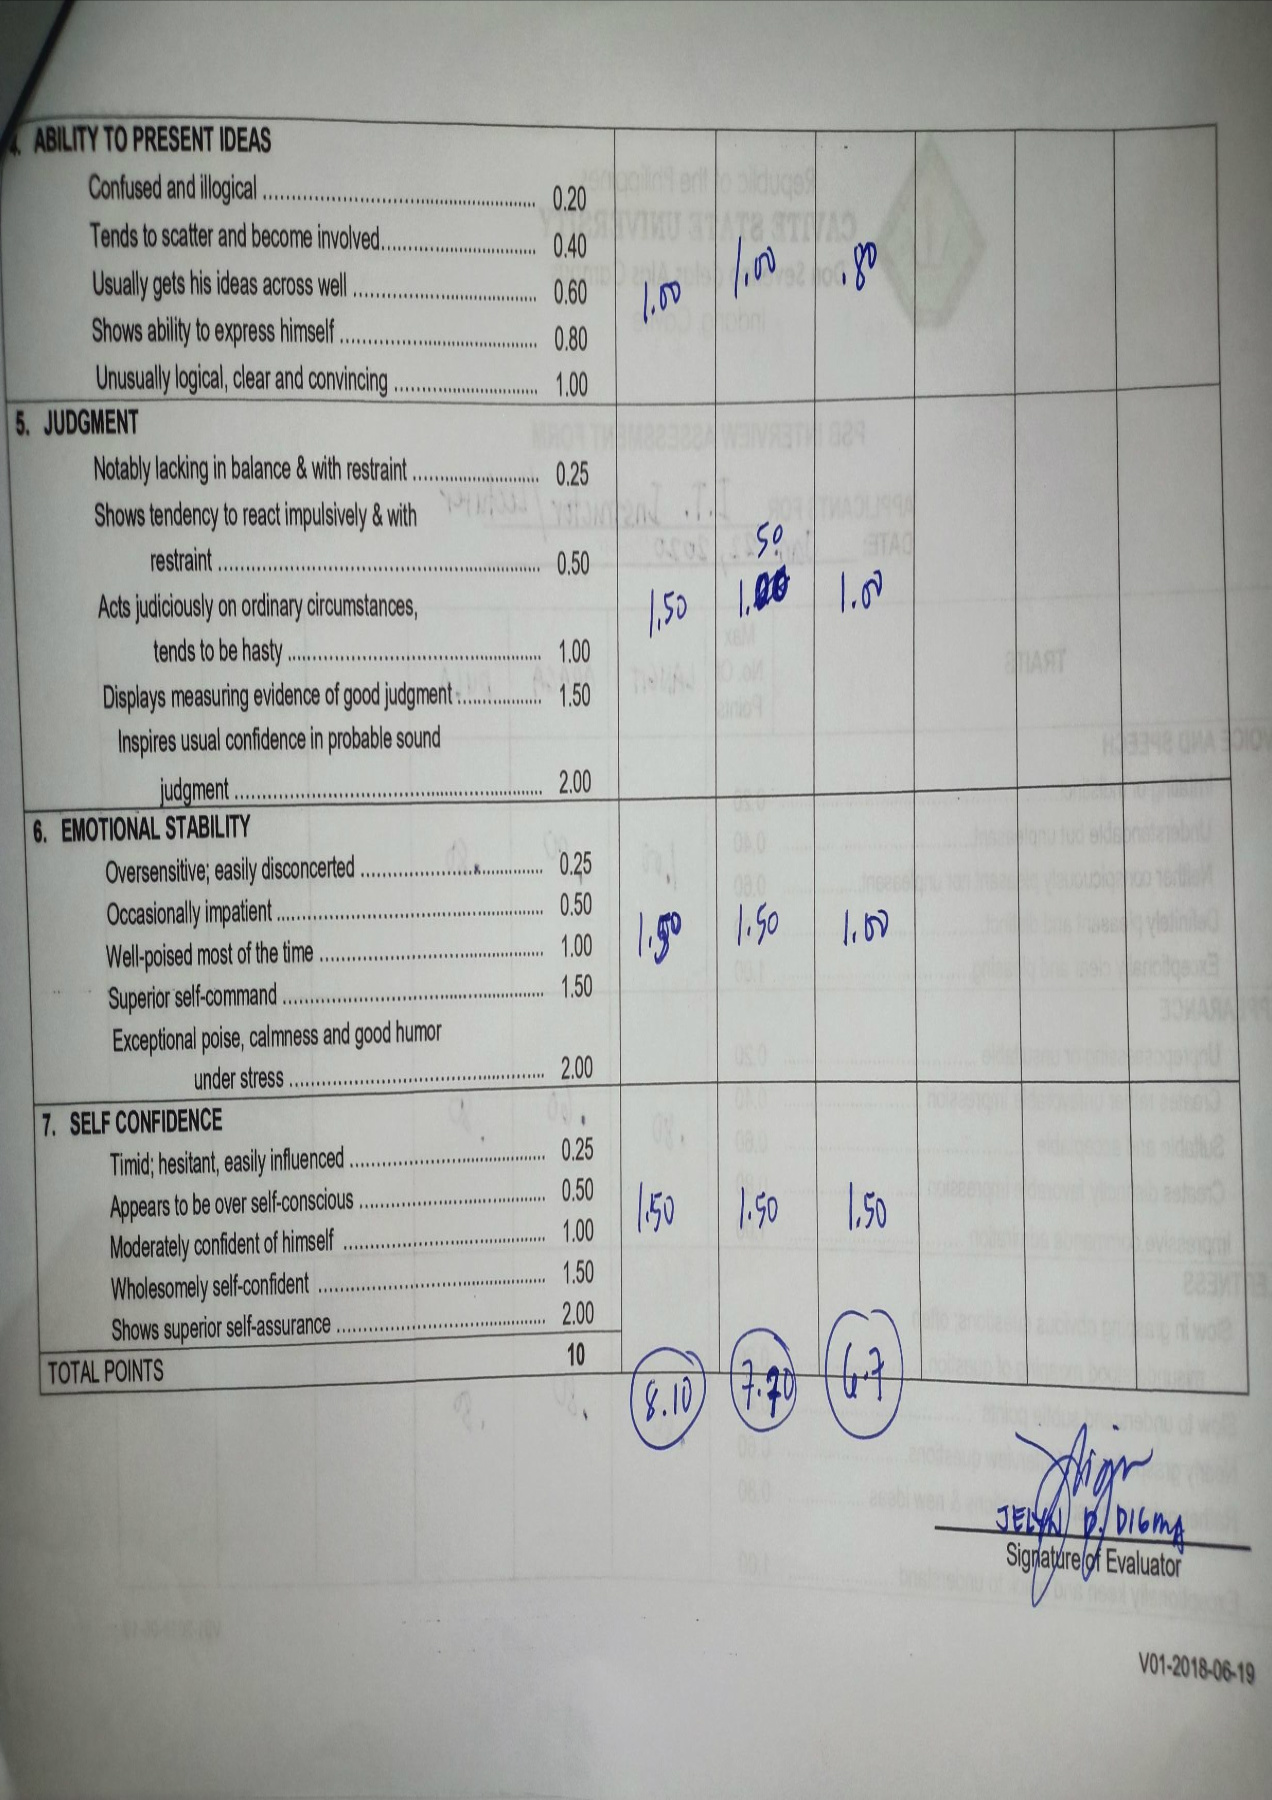 4. ABILITY TO PRESENT IDEAS
Confused and illogical ........ 0.20
Tends to scatter and become involved........ 0.40
Usually gets his ideas across well ........ 0.60
Shows ability to express himself ........ 0.80
Unusually logical, clear and convincing ........ 1.00
1.00 1.00 .80
5. JUDGMENT
Notably lacking in balance & with restraint ........ 0.25
Shows tendency to react impulsively & with
restraint ........ 0.50
Acts judiciously on ordinary circumstances,
tends to be hasty ........ 1.00
Displays measuring evidence of good judgment ........ 1.50
Inspires usual confidence in probable sound
judgment ........ 2.00
50
1.50 1. 1.00
6. EMOTIONAL STABILITY
Oversensitive; easily disconcerted ........ 0.25
Occasionally impatient ........ 0.50
Well-poised most of the time ........ 1.00
Superior self-command ........ 1.50
Exceptional poise, calmness and good humor
under stress ........ 2.00
1.50 1.50 1.00
7. SELF CONFIDENCE
Timid; hesitant, easily influenced ........ 0.25
Appears to be over self-conscious ........ 0.50
Moderately confident of himself ........ 1.00
Wholesomely self-confident ........ 1.50
Shows superior self-assurance ........ 2.00
1.50 1.50 1.50
TOTAL POINTS 10
8.10 7.70 6.7
JELYN P. DIGMA
Signature of Evaluator
V01-2018-06-19